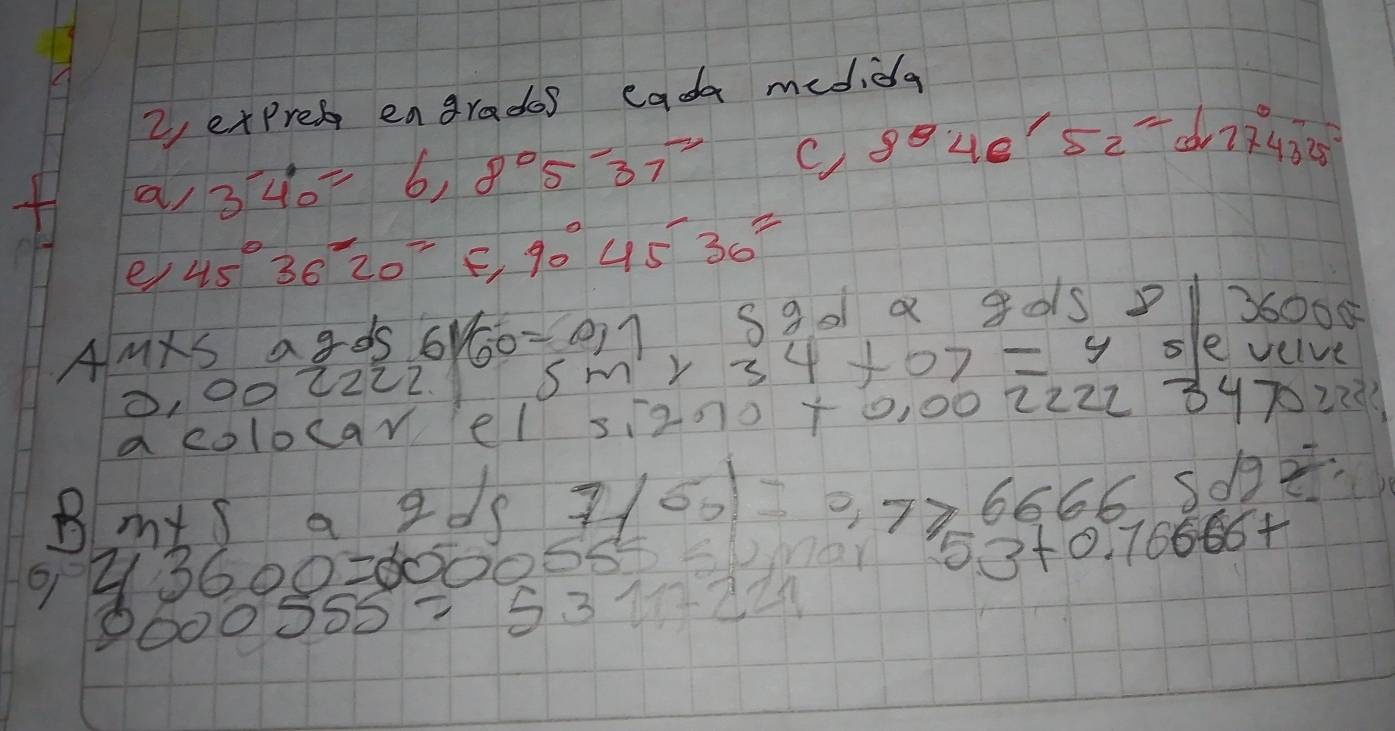 2, expresa en grados cada medida
a, 3 40 b, 8° 5 37 c, 8° 40' 52 d, 27° 43 25
e, 45° 36 20 F, 90° 45 36
A mts a gds 6/60 = 0,1 sgd a gds 8/3600
0,002222. Sm r 34 + 07 = y se velve
a colocar el signo + 0,002222
B mts a gds 7/60 = 6666
3600 = 0000555 sumar 53 + 0.16666 +
0000555 = 53